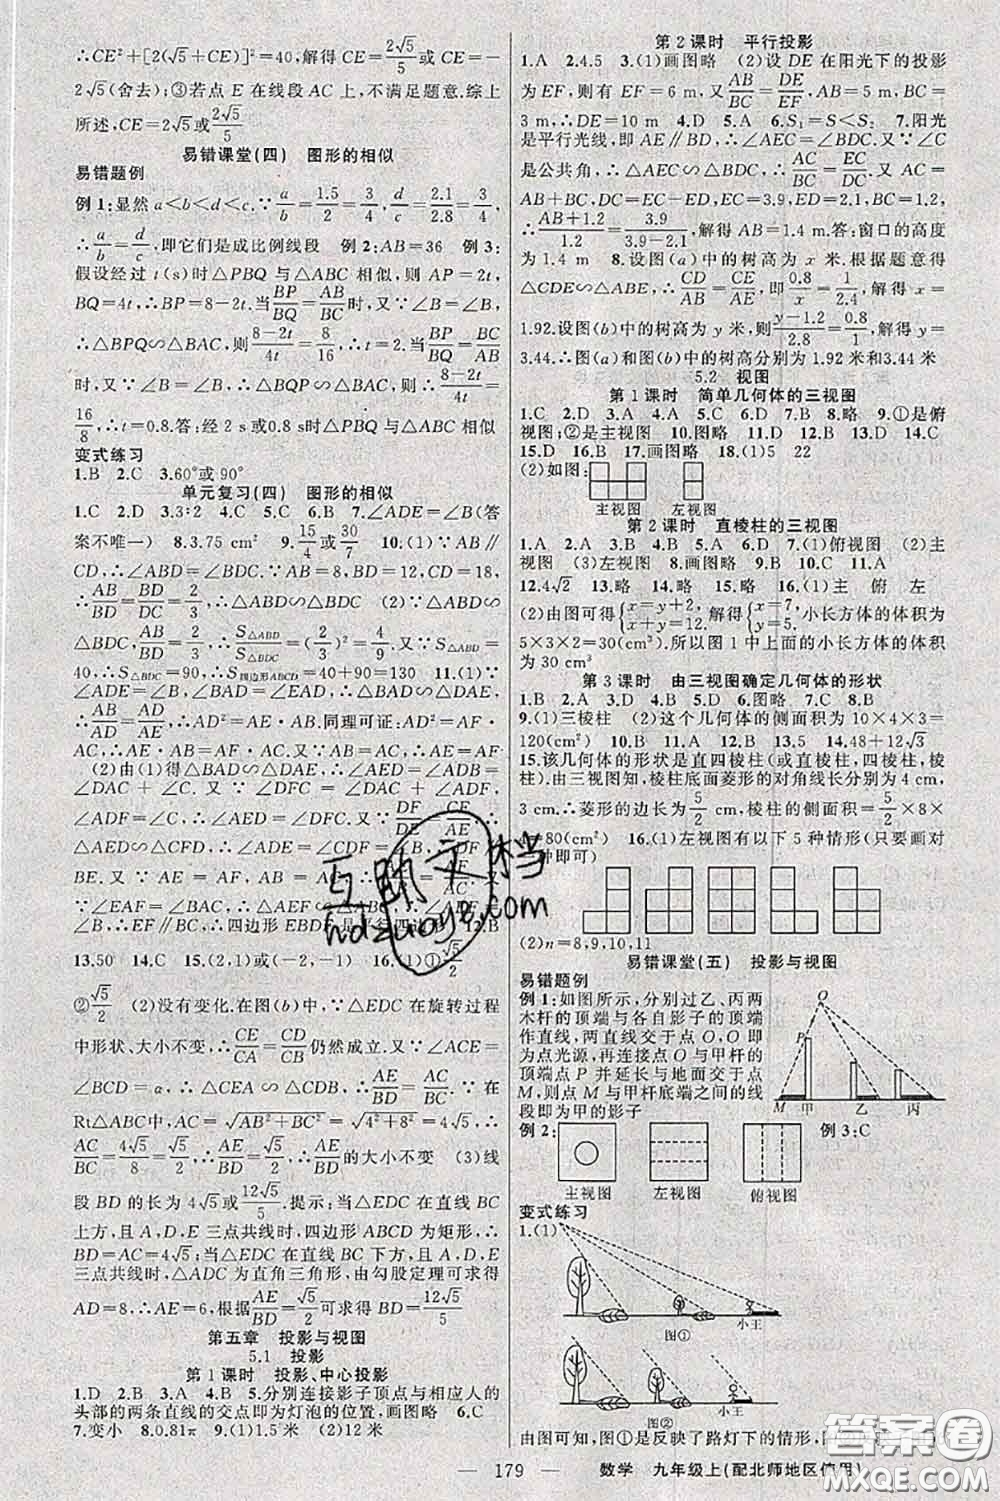 ∴CE²+[2(√5+CE)]²=40,解得 CE=2√5/5或CE=-
2√5(舍去);③若点 E 在线段 AC 上,不满足题意.综上
所述,CE=2√5或2√5/5
易错课堂(四) 图形的相似
易错题例
例 1:显然 a<b<d<c.∵a/b=1.5/2=3/4,d/c=2.1/2.8=3/4,
∴a/b=d/c,即它们是成比例线段 例 2:AB=36 例 3:
假设经过 t(s)时△PBQ 与△ABC 相似,则 AP=2t,
BQ=4t,∴BP=8-2t.当BP/AB=BQ/BC时,又∵∠B=∠B,
∴△BPQ∽△BAC,则8-2t/4t=8/16,∴t=2.当BP/BC=BQ/AB
时,又∵∠B=∠B,∴△BQP∽△BAC,则8-2t/4t=
16/8,∴t=0.8.答:经 2 s或0.8 s时△PBQ 与△ABC 相似
变式练习
1.B 2.C 3.60°或 90°
单元复习(四) 图形的相似
1.C 2.D 3.3:2 4.C 5.C 6.B 7.∠ADE=∠B(答
案不唯一) 8.3.75 cm² 9.15/4或30/7 10.(1)∵AB∥
CD,∴∠ABD=∠BDC.∵AB=8,BD=12,CD=18,
∴AB/BD=BD/DC=2/3,∴△ABD∽△BDC (2)∵△ABD∽
△BDC,AB/BD=2/3,∴S△ABD/S△BDC=(2/3)²=4/9.又∵S△ABD=
40,∴S△BDC=90,∴S四边形ABCD=40+90=130 11.(1)∵
∠ADE=∠B,∠BAD=∠DAE,∴△BAD∽△DAE,
∴AB/AD=AD/AE,∴AD²=AE·AB.同理可证:AD²=AF·
AC,∴AE·AB=AF·AC.又∵AD²=AE·AB=AF·AC
(2)由(1)得△BAD∽△DAE,∴∠AED=∠ADB=
∠DAC+∠C.又∵∠DFC=∠DAC+∠ADF,
∠ADF=∠C,∴∠AED=∠DFC.又∵∠DAE=∠C,
13.50 14.C 15.(2,1)或(-2,-1) 16.(1)①√5/2
②√5/2 (2)没有变化.在图(b)中,∵△EDC在旋转过程
中形状、大小不变,∴CE/CA=CD/CB仍然成立.又∵∠ACE=
∠BCD=α,∴△CEA∽△CDB,∴AE/BD=AC/BC.∵在
Rt△ABC中,AC=√AB²+BC²=√4²+8²=4√5,∴
AC/BC=4√5/8=√5/2,∴AE/BD=√5/2,∴AE/BD的大小不变 (3)线
段 BD 的长为 4√5或12√5/5.提示:当△EDC 在直线 BC
上方,且 A,D,E 三点共线时,四边形 ABCD 为矩形,∴
BD=AC=4√5;当△EDC 在直线 BC 下方,且 A,E,D
三点共线时,△ADC 为直角三角形,由勾股定理可求得
AD=8,∴AE=6,根据AE/BD=√5/2可求得 BD=12√5/5
第五章 投影与视图
5.1 投影
第 1 课时 投影、中心投影
1.D 2.B 3.A 4.B 5.分别连接影子顶点与相应人的
头部的两条直线的交点即为灯泡的位置,画图略 6.C
7.变小 8.0.81π 9.(1)2米 (2)12 米
第 2 课时 平行投影
1.A 2.4.5 3.(1)画图略 (2)设 DE 在阳光下的投影
为 EF,则有 EF=6 m,AB/BC=DE/EF,AB=5 m,BC=
3 m,∴DE=10 m 4.D 5.A 6.S₁=S<S₂ 7.阳光
是平行光线,即 AE∥BD,∴∠AEC=∠BDC.又∵∠C
是公共角,∴△AEC∽△BDC,∴AC/BC=EC/DC.又∵AC=
AB+BC,DC=EC-ED,EC=3.9,ED=2.1,BC=1.2,
∴AB+1.2/1.2=3.9/3.9-2.1,解得 AB=1.4.答:窗口的高度
为 1.4 m 8.设图(a)中的树高为 x 米.根据题意得
△CDE∽△ABE,∴CD/AB=CE/AE,即0.8/x=1/2.4,解得 x=
1.92.设图(b)中的树高为 y 米,则y-1.2/2.8=0.8/1,解得 y=
3.44.∴图(a)和图(b)中的树高分别为 1.92 米和3.44 米
5.2 视图
第 1 课时 简单几何体的三视图
1.C 2.D 3.A 4.A 5.C 6.D 7.B 8.略 9.①是俯
视图;②是主视图 10.图略 11.B 12.A 13.D 14.C
15.D 16.B 17.画图略 18.(1)5 22
(2)如图:
主视图 左视图
第 2 课时 直棱柱的三视图
1.A 2.A 3.B 4.C 5.B 6.D 7.(1)俯视图 (2)主
视图 (3)左视图 8.画图略 9.B 10.C 11.C
12.4√2 13.略 14.略 15.略 16.(1)主 俯 左
(2)由图可得{x=y+2, x+y=12.解得{x=7, y=5.小长方体的体积为
5×3×2=30(cm³).所以图 1 中上面的小长方体的体积
为 30 cm³
第 3 课时 由三视图确定几何体的形状
1.B 2.A 3.D 4.D 5.D 6.图略 7.C 8.B
9.(1)三棱柱 (2)这个几何体的侧面积为 10×4×3=
120(cm²) 10.A 11.B 12.B 13.5 14.48+12√3
15.该几何体的形状是直四棱柱(或直棱柱,四棱柱,棱
柱).由三视图知,棱柱底面菱形的对角线长分别为 4 cm,
3 cm.∴菱形的边长为5/2 cm,棱柱的侧面积=5/2×8×
4=80(cm²) 16.(1)左视图有以下 5 种情形(只要画对
一种即可)
(2)n=8,9,10,11
易错课堂(五) 投影与视图
易错题例
例 1:如图所示,分别过乙、丙两
木杆的顶端与各自影子的顶端
作直线,两直线交于点 O,O 即
为点光源,再连接点 O 与甲杆的
顶端点 P 并延长与地面交于点
M,则点 M 与甲杆底端之间的线
段即为甲的影子
O P M 甲 乙 丙
例 2: 例 3:C
主视图 左视图 俯视图
变式练习
1.(1)
小王
图①
小王
图②
由图可知,图①是反映了路灯下的情形,
— 179 — 数学 九年级上(配北师地区使用)
互助文档
hdzuoye.com
答案圈
MXQE.COM